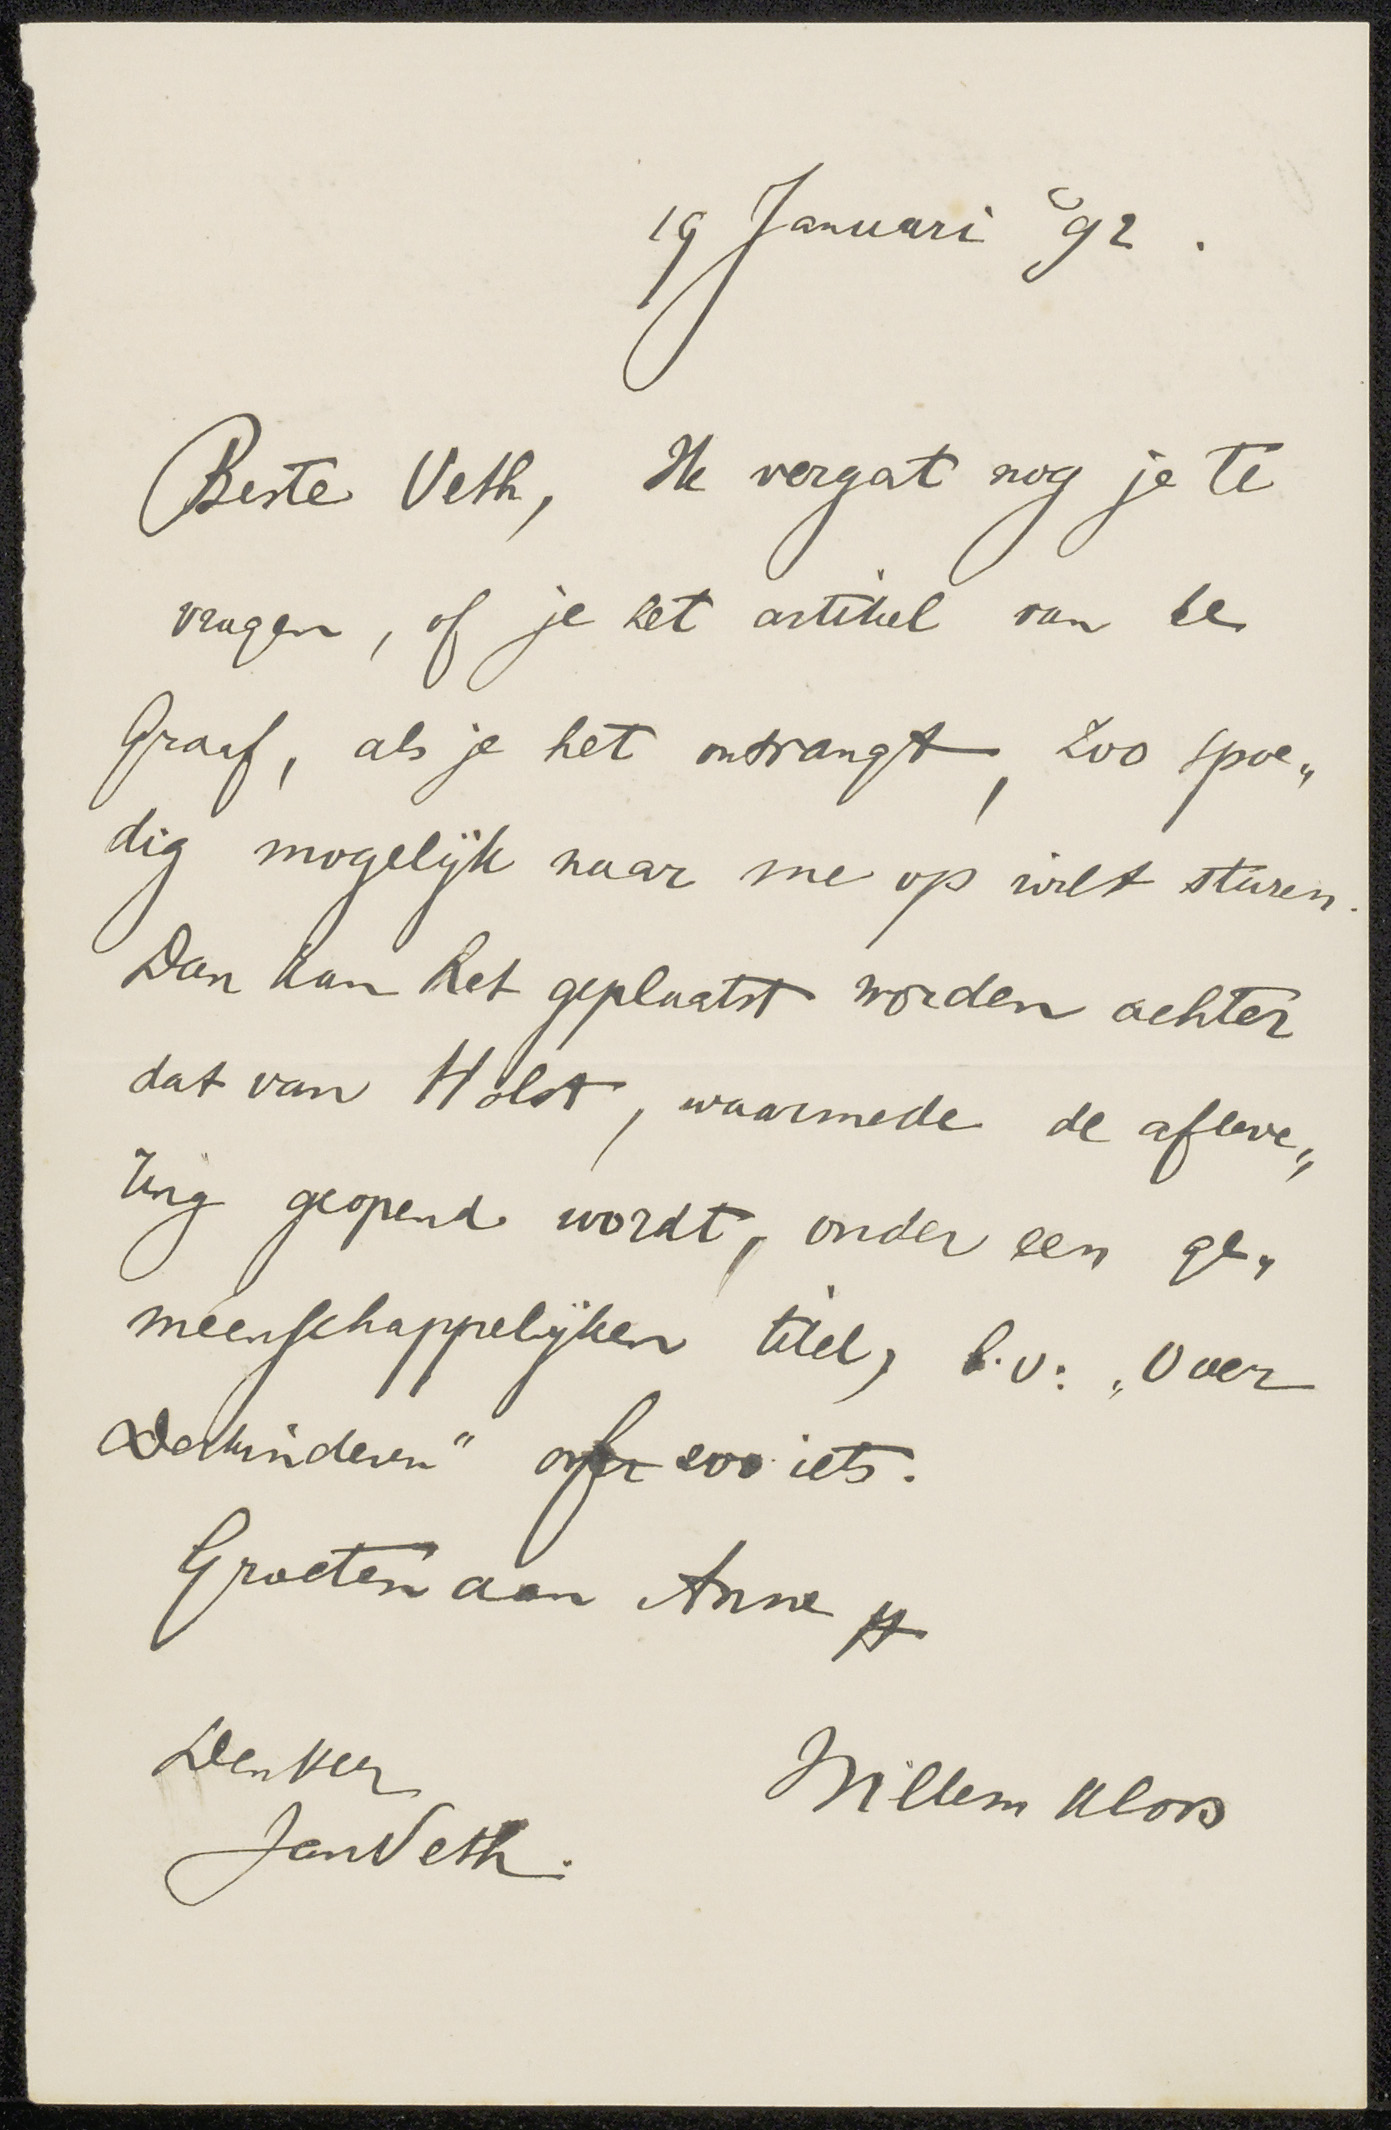 19 Januari '92.
Beste Veth, Ik vergat nog je te
vragen, of je het artikel van de
Graaf, als je het ontvangt, zoo spoe„
dig mogelijk naar me op wilt sturen.
Dan kan het geplaatst worden achter
dat van Holst, waarmede de afleve„
ring geopend wordt, onder een ge„
meenschappelijken titel, b.v: „Over
Derkinderen" of zoo iets.
Groeten aan Anna
Den Heer
Willem Kloos
Jan Veth.